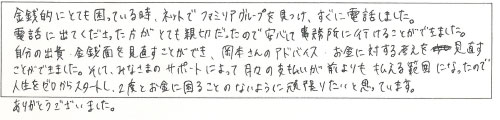 金銭的にとても困っている時、ネットでファミリアグループを見つけ、すぐに電話しました。
電話に出てくださった方がとても親切だったので安心して事務所に行けることができました。
自分の出費・金銭面を見直すことができ、岡本さんのアドバイス・お金に対する考えを見直す
ことができました。そして、みなさまのサポートによって月々の支払いが前よりも払える範囲になったので
人生をゼロからスタートし、2度とお金に困ることのないように頑張りたいと思っています。
ありがとうございました。